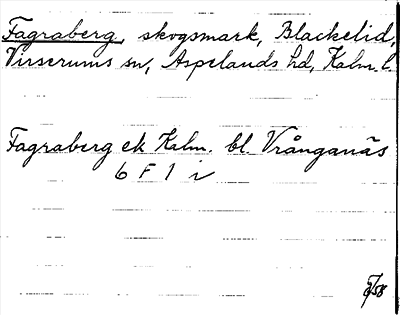 Fagraberg, skogsmark, Blackelid,
Virserums sn, Aspelands hd, Kalm. l.
Fagraberg ek Kalm. bl. Vrånganäs
6 F 1 i